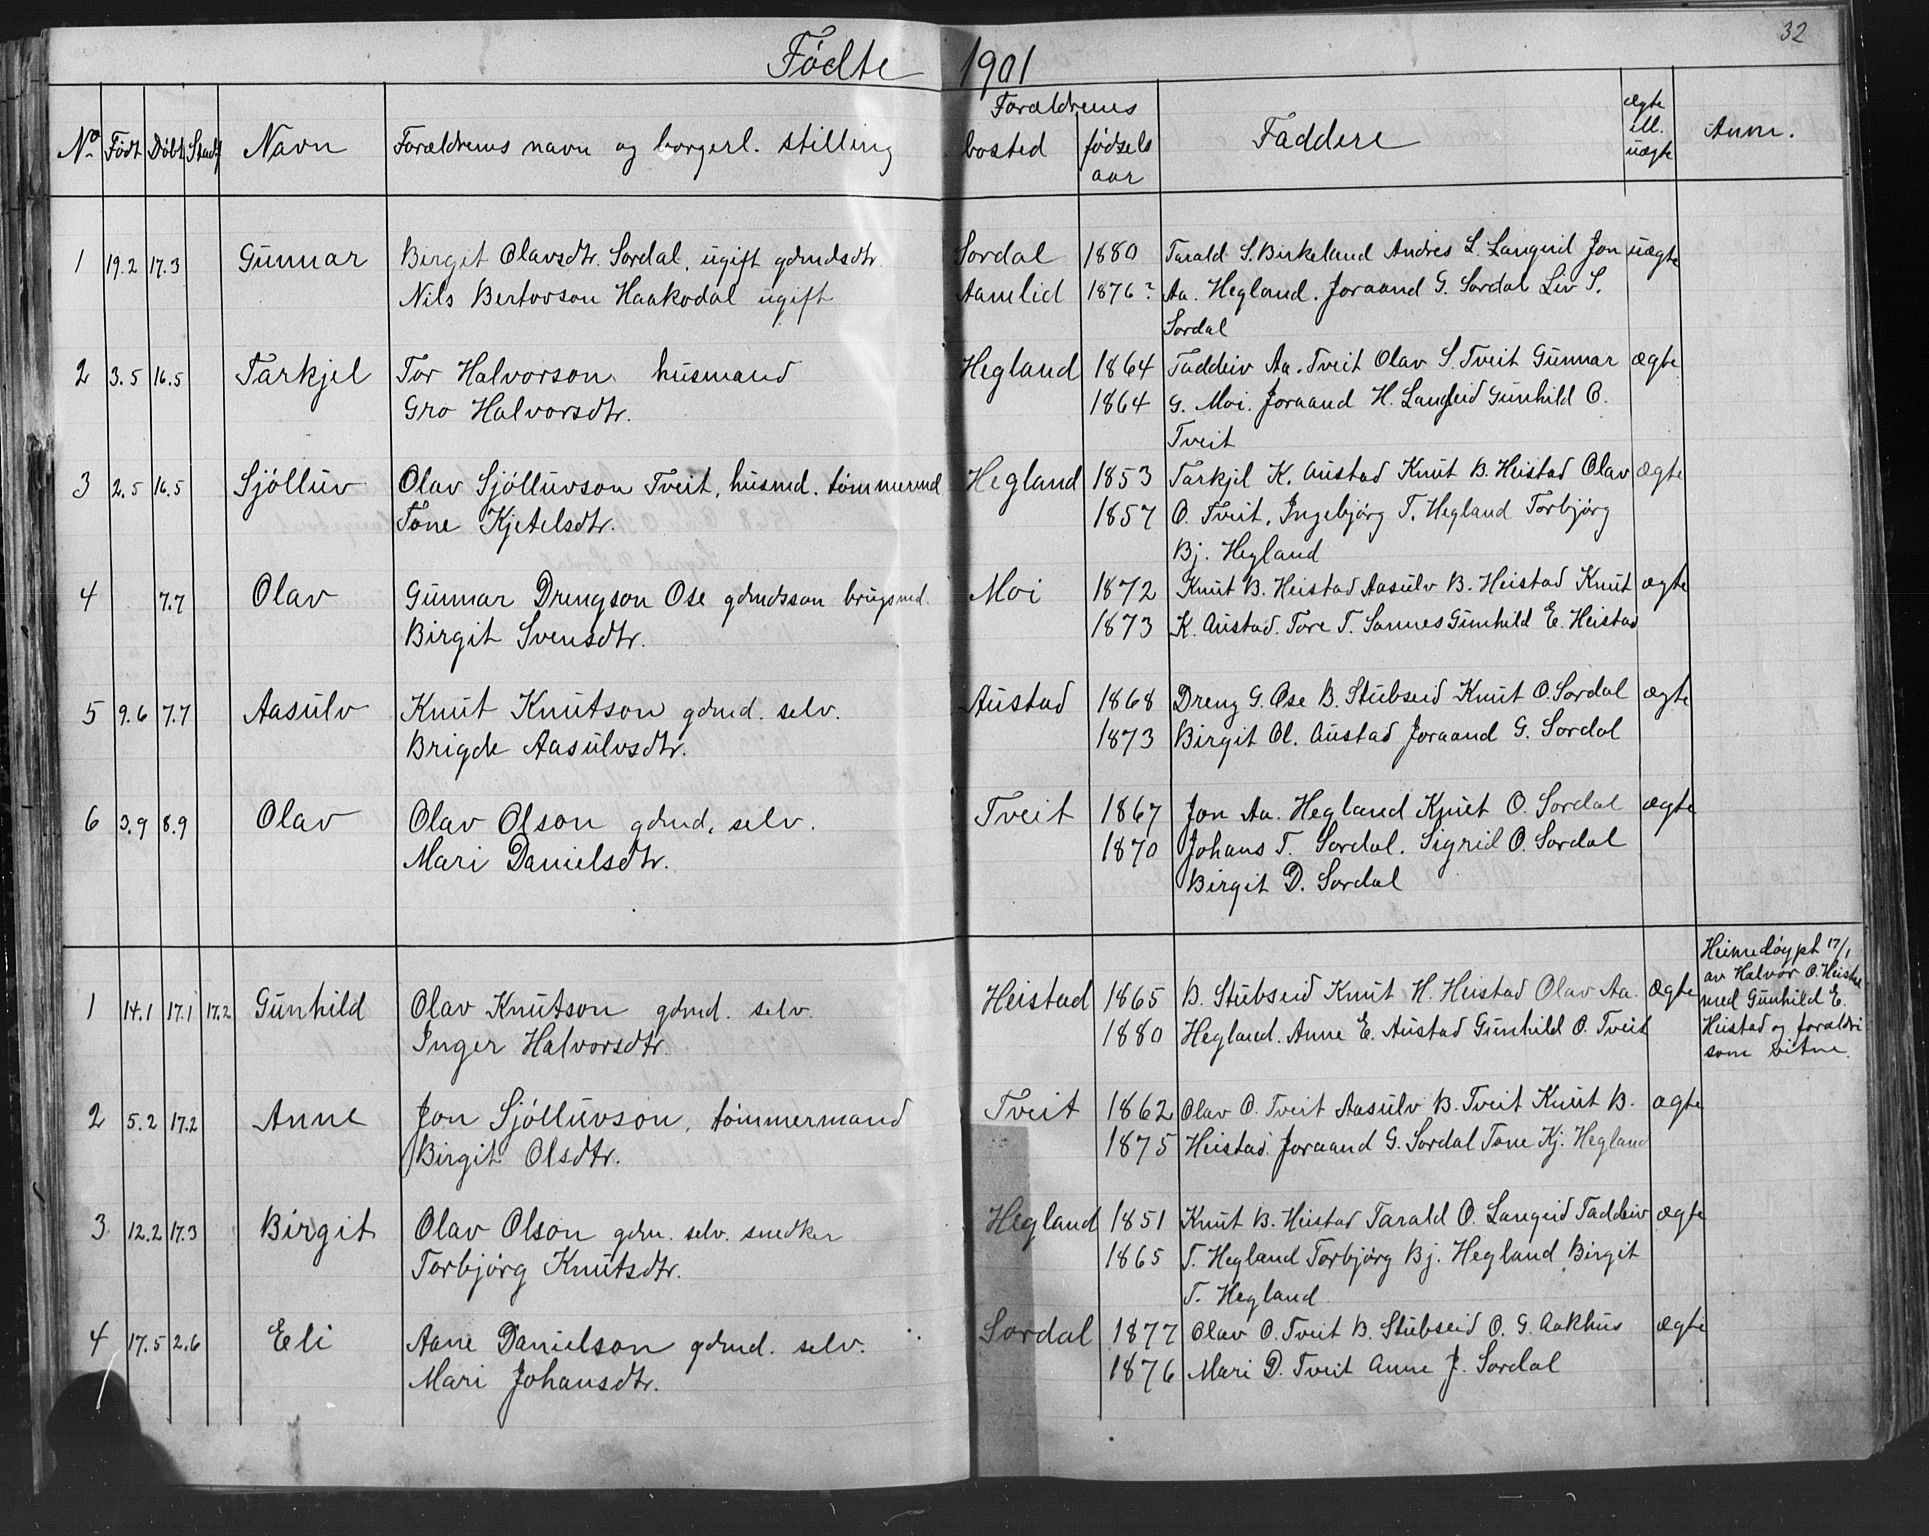 32
Fødte 1901
No Født Døbt Stadf Navn Forældrenes navn og borgerl. stilling Forældrenes bosted fødsels aar Faddere ægte ell. uægte Anm.
1 19.2 17.3 Gunnar Birgit Olavsdtr. Sordal, ugift gdmdsdtr. Sordal 1880 Tarald S. Birkeland Andres L. Langeid Jon uægte
Nils Bertovson Haakodal ugift Aamlid 1876? Aa. Hegland. Joraand G. Sordal Liv S.
Sordal
2 3.5 16.5 Tarkjel Tor Halvorson husmand Hegland 1864 Taddeiv Aa. Tveit Olav S. Tveit Gunnar ægte
Gro Halvorsdtr. 1864 G. Moi. Joraand H. Langeid Gunhild O.
Tveit
3 2.5 16.5 Sjölluv Olav Sjölluvson Tveit, husmd. tömmermd Hegland 1853 Tarkjel K. Austad Knut B. Heistad Olav ægte
Tone Kjetelsdtr. 1857 O. Tveit, Ingebjørg T. Hegland Torbjørg
Bj. Hegland
4 7.7 Olav Gunnar Drengson Ose gdmdsson brugsmd. Moi 1872 Knut B. Heistad Aasulv B. Heistad Knut ægte
Birgit Svensdtr. 1873 K. Austad. Tore T. Sannes Gunhild E. Heistad
5 9.6 7.7 Aasulv Knut Knutson gdmd. selv. Austad 1868 Dreng G. Ose B. Stubseid Knut O. Sordal ægte
Brigde Aasulvsdtr. 1873 Birgit Ol. Austad Joraand G. Sordal
6 3.9 8.9 Olav Olav Olson gdmd. selv. Tveit 1867 Jon Aa. Hegland Knut O. Sordal ægte
Mari Danielsdtr. 1870 Johans T. Sordal. Sigrid O. Sordal
Birgit D. Sordal
1 14.1 17.1 17.2 Gunhild Olav Knutson gdmd. selv. Heistad 1865 B. Stubseid Knut H. Heistad Olav Aa. ægte
Inger Halvorsdtr. 1880 Hegland. Anne E. Austad Gunhild O. Tveit
Heimedøypt 17/1
av Halvor O. Heistad
med Gunhild E.
Heistad og foraldri
som vitne.
2 5.2 17.2 Anne Jon Sjölluvson, tömmermand Tveit 1862 Olav O. Tveit Aasulv B. Tveit Knut B. ægte
Birgit Olsdtr. 1875 Heistad. Joraand G. Sordal Tone Kj. Hegland
3 12.2 17.3 Birgit Olav Olson gdm. selv. snedker Hegland 1851 Knut B. Heistad Tarald O. Langeid Taddeiv ægte
Torbjørg Knutsdtr. 1865 T. Hegland Torbjørg Bj. Hegland Birgit
T. Hegland
4 17.5 2.6 Eli Aane Danielson gdmd. selv. Sordal 1877 Olav O. Tveit B. Stubseid O. G. Aakhus ægte
Mari Johansdtr. 1876 Mari D. Tveit Anne J. Sordal